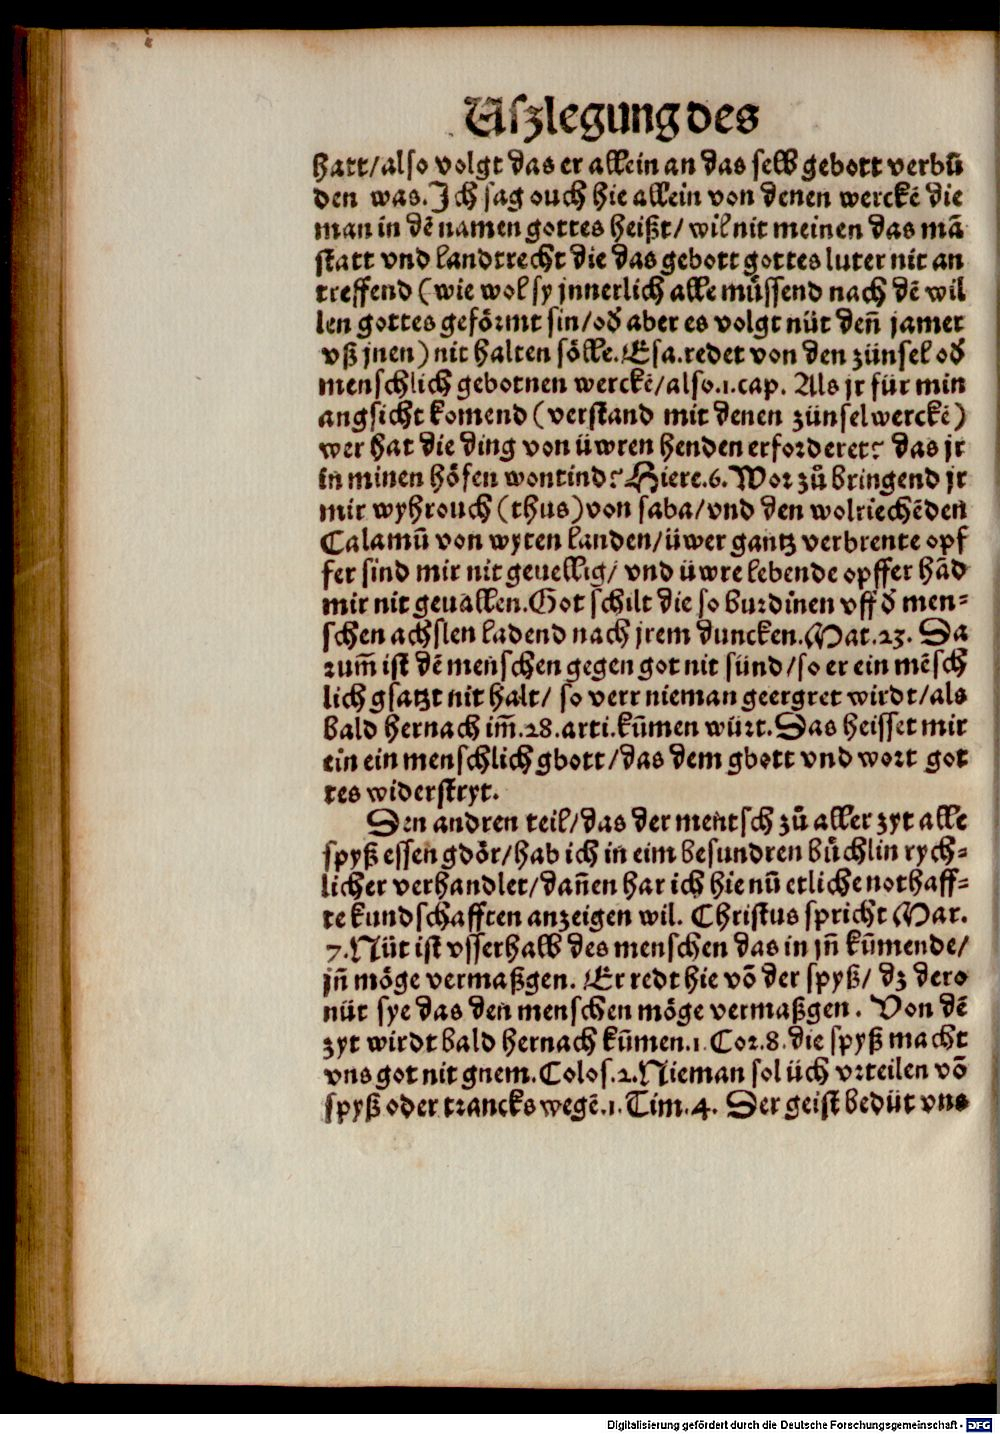 Uſzlegung des
hatt/also volgt das er allein an das selb gebott verbū
den was. Ich sag ouch hie allein von denen werckē die
man in dē namen gottes heißt/ wil nit meinen das mā
statt vnd landtrecht die das gebott gottes luter nit an
treffend (wie wol sy jnnerlich alle müssend nach dē wil
len gottes geförmt sin/od̓ aber es volgt nüt den̄ jamer
vß jnen) nit halten sölle. Esa. redet von den zünsel od̓
menschlich gebotnen werckē/also.1.cap. Als jr für min
angsicht komend (verstand mit denen zünselwerckē)
wer hat die ding von üwren henden erforderet? das jr
in minen höfen wontind? Hiere.6. Wor zů bringend jr
mir wyhrouch (thus) von saba/vnd den wolriechēden
Calamū von wyten landen/üwer gantz verbrente opf
fer sind mir nit geuellig/ vnd üwre lebende opffer hād
mir nit geuallen. Got schilt die so burdinen vff d̓ men⸗
schen achslen ladend nach jrem duncken. Mat.23. Da
rum̄ ist dē menschen gegen got nit sünd/so er ein mēsch
lich gsatzt nit halt/ so verr nieman geergret wirdt/als
bald hernach im̄.28.arti.kūmen würt. Das heisset mir
ein ein menschlich gbott/das dem gbott vnd wort got
tes widerstryt.
Den andren teil/das der mentsch zů aller zyt alle
spyß essen gdör/hab ich in eim besundren büchlin rych⸗
licher verhandlet/dan̄en har ich hie nū etliche nothaff⸗
te kundschafften anzeigen wil. Christus spricht Mar.
7. Nüt ist vsserhalb des menschen das in jn̄ kūmende/
jn̄ möge vermaßgen. Er redt hie vō der spyß/ dz dero
nüt sye das den menschen möge vermaßgen. Von dē
zyt wirdt bald hernach kūmen.1.Cor.8.die spyß macht
vns got nit gnem. Colos.2. Nieman sol üch vrteilen vō
spyß oder trancks wegē.1.Tim.4. Der geist bedüt vns
Digitalisierung gefördert durch die Deutsche Forschungsgemeinschaft - DFG